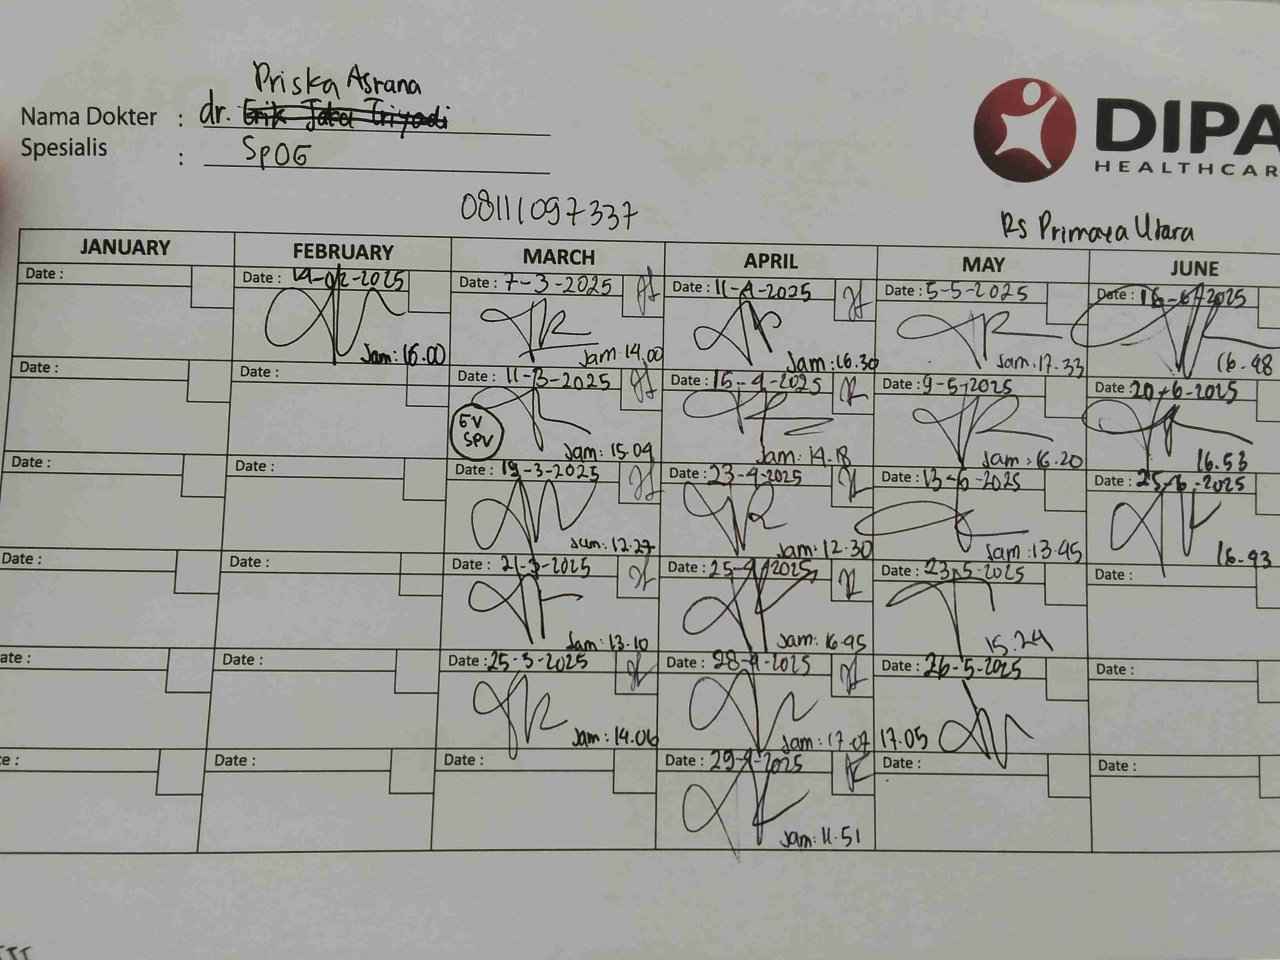 Priska Asrana
Nama Dokter : dr. Erik Jaka Triyadi
Spesialis : SpOG
DIPA
HEALTHCAR
08111097337
Rs Primaya Utara
JANUARY FEBRUARY MARCH APRIL MAY JUNE
Date : Date : 19-02-2025 Date : 7-3-2025 Date : 11-4-2025 Date : 5-5-2025 Date : 16-6-2025
Jam: 16.00 Jam: 14.00 Jam: 16.30 Jam: 17.33 16.48
Date : Date : Date : 11-3-2025 Date : 15-4-2025 Date : 9-5-2025 Date : 20-6-2025
SPV
Jam: 15.09 Jam: 14.18 Jam: 16.20 16.53
Date : Date : Date : 19-3-2025 Date : 23-4-2025 Date : 13-6-2025 Date : 25-6-2025
Jam: 12.27 Jam: 12.30 Jam: 13.45 16.43
Date : Date : Date : 21-3-2025 Date : 25-4-2025 Date : 23-5-2025 Date :
Jam: 13.10 Jam: 16.45 15.24
ate : Date : Date : 25-3-2025 Date : 28-4-2025 Date : 26-5-2025 Date :
Jam: 14.06 Jam: 17.07 17.05
e : Date : Date : Date : 29-4-2025 Date : Date :
Jam: 11.51